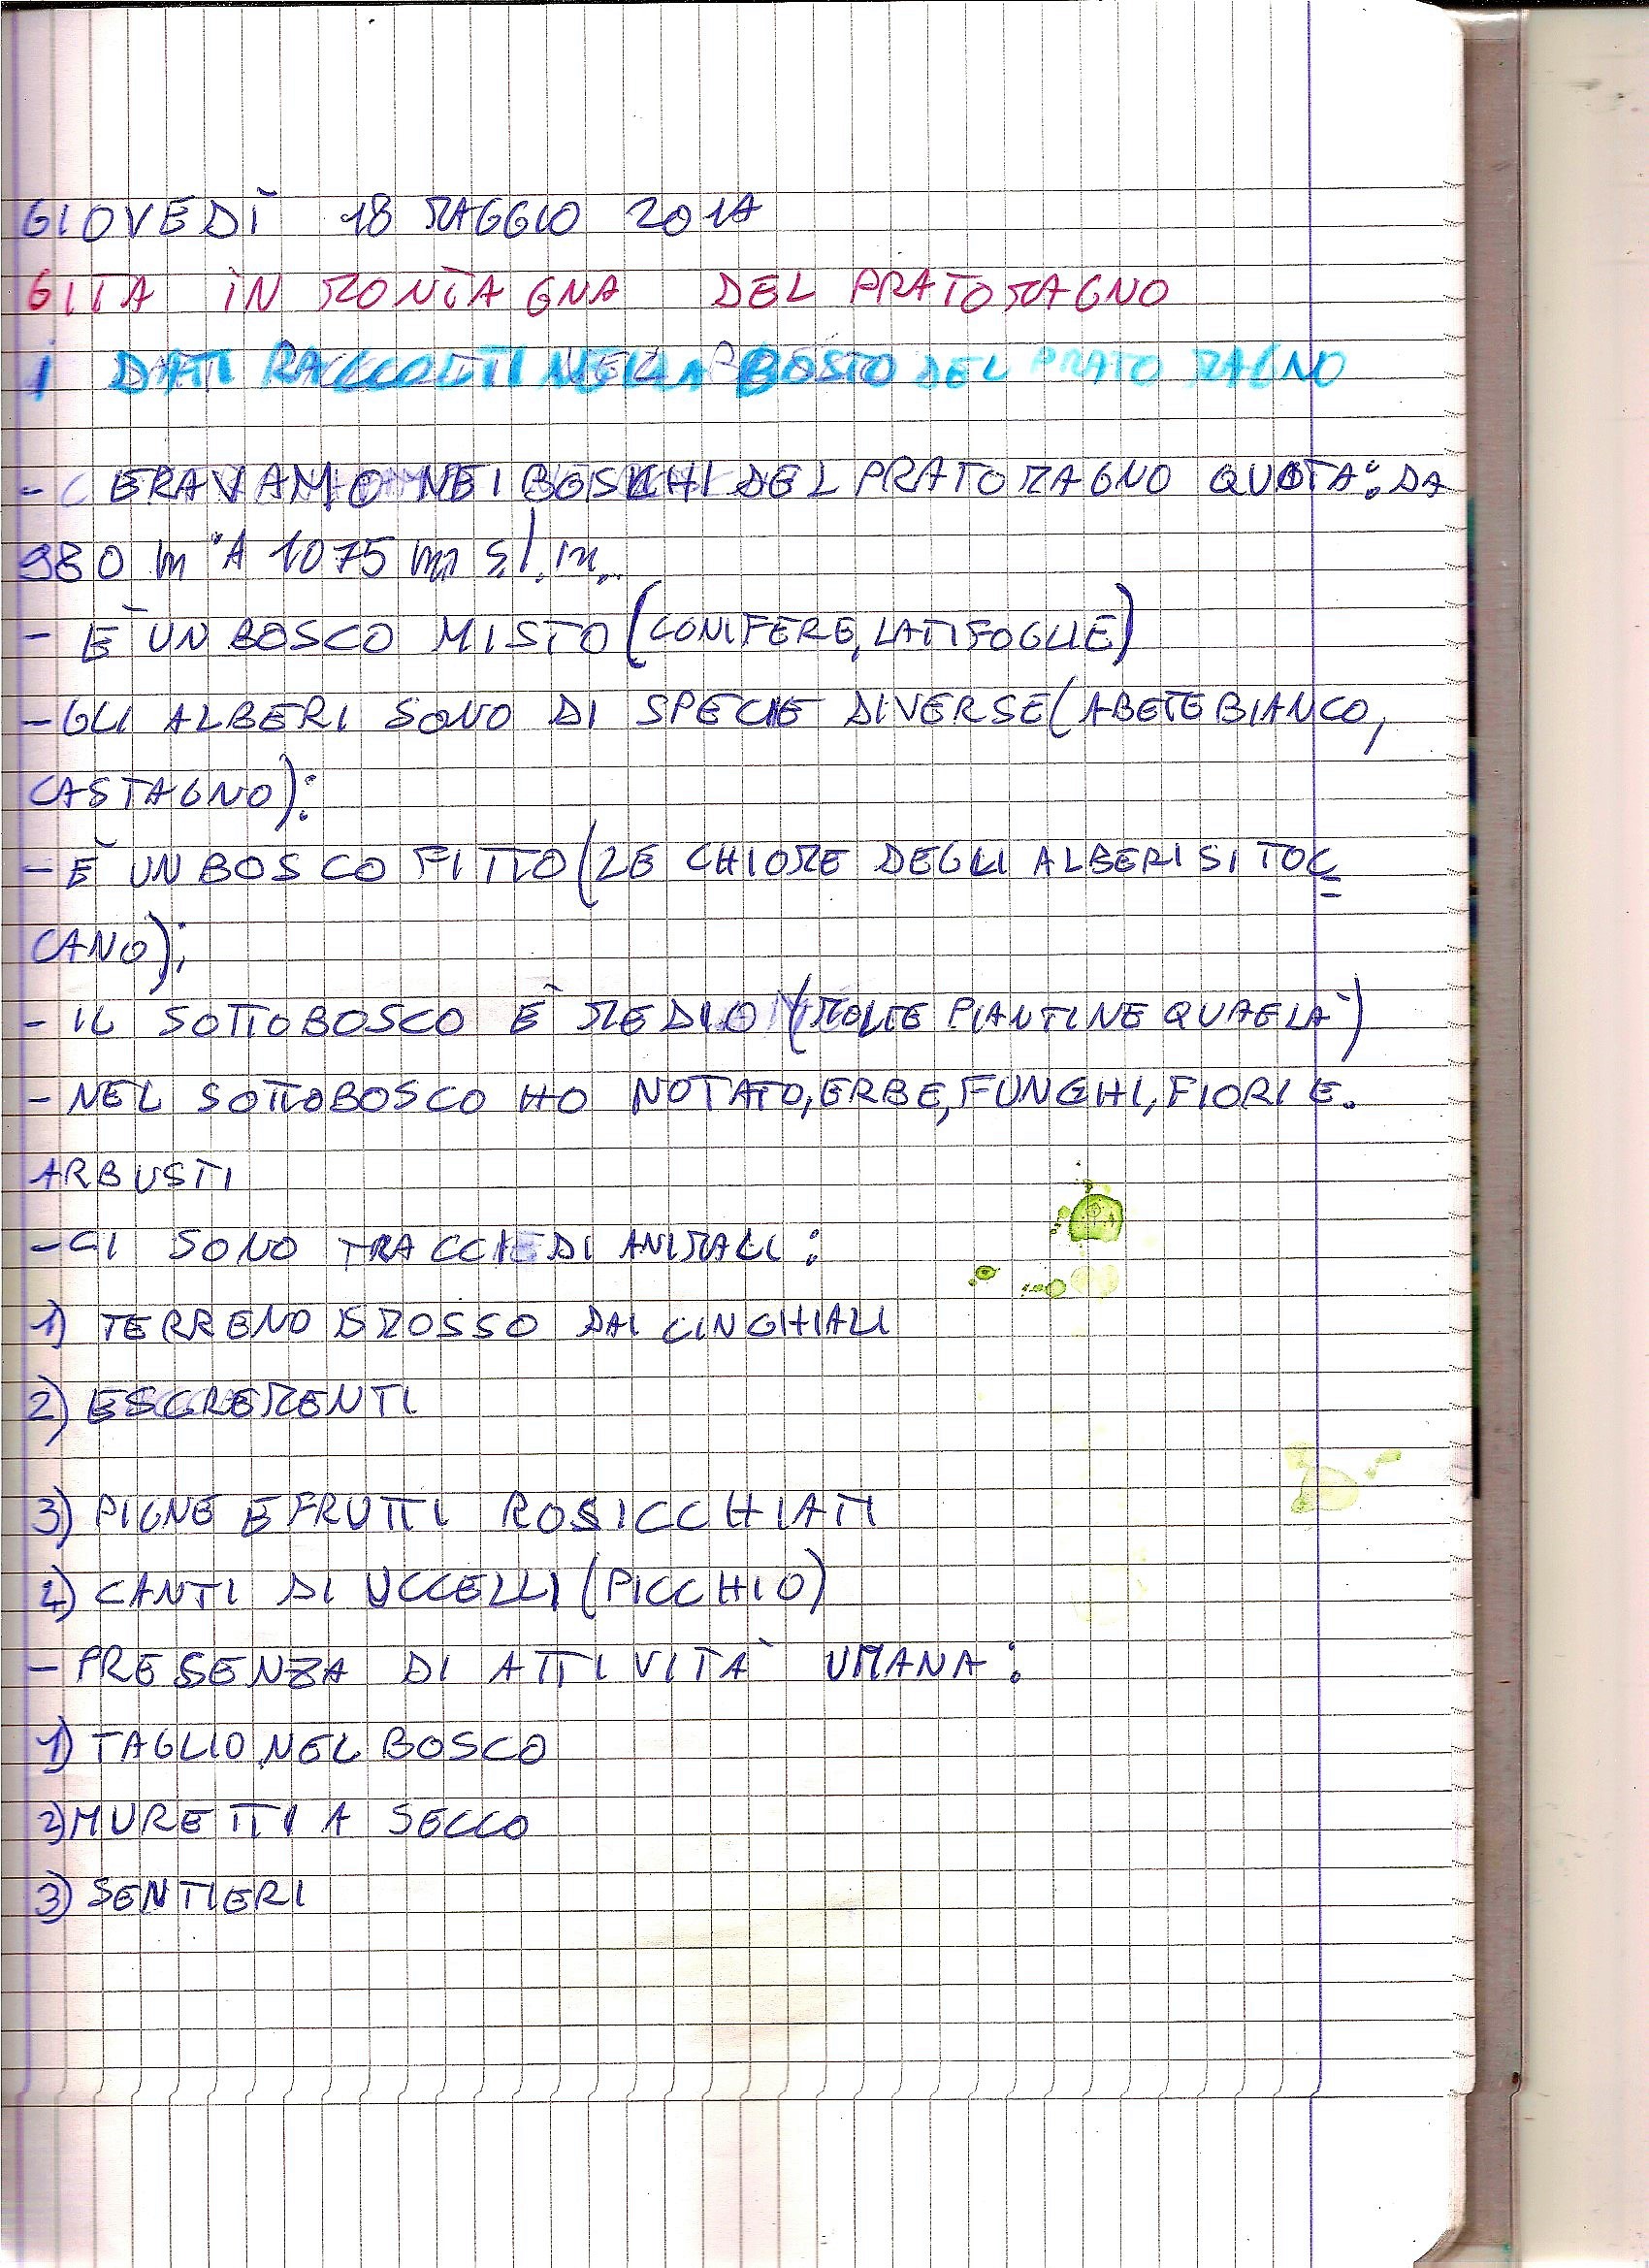 GIOVEDÌ 18 MAGGIO 2017
GITA IN MONTAGNA DEL PRATOMAGNO
I DATI RACCOLTI DEL PRATO MAGNO
- ERAVAMO NEI BOSCHI DEL PRATOMAGNO QUOTA: DA
980 m A 1075 m s.l.m.
- È UN BOSCO MISTO (CONIFERE, LATIFOGLIE)
- GLI ALBERI SONO DI SPECIE DIVERSE (ABETE BIANCO,
CASTAGNO):
- È UN BOSCO FITTO (LE CHIOME DEGLI ALBERI SI TOC=
CANO);
- IL SOTTOBOSCO È MEDIO (MOLTE PIANTINE QUA E LÀ)
- NEL SOTTOBOSCO HO NOTATO, ERBE, FUNGHI, FIORI E.
ARBUSTI
- CI SONO TRACCIE DI ANIMALI:
1) TERRENO SMOSSO DAI CINGHIALI
2) ESCREMENTI
3) PIGNE E FRUTTI ROSICCHIATI
4) CANTI DI UCCELLI (PICCHIO)
- PRESENZA DI ATTIVITÀ UMANA:
1) TAGLIO NEL BOSCO
2) MURETTI A SECCO
3) SENTIERI